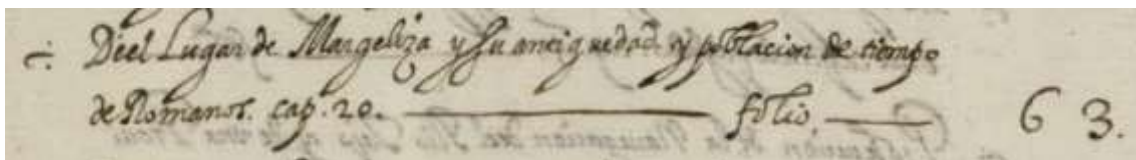 ÷ Deel Lugar de Margeliza y su antiguedad y poblacion de tiempo
de Romanos. cap. 20. ——— folio. —— 63.